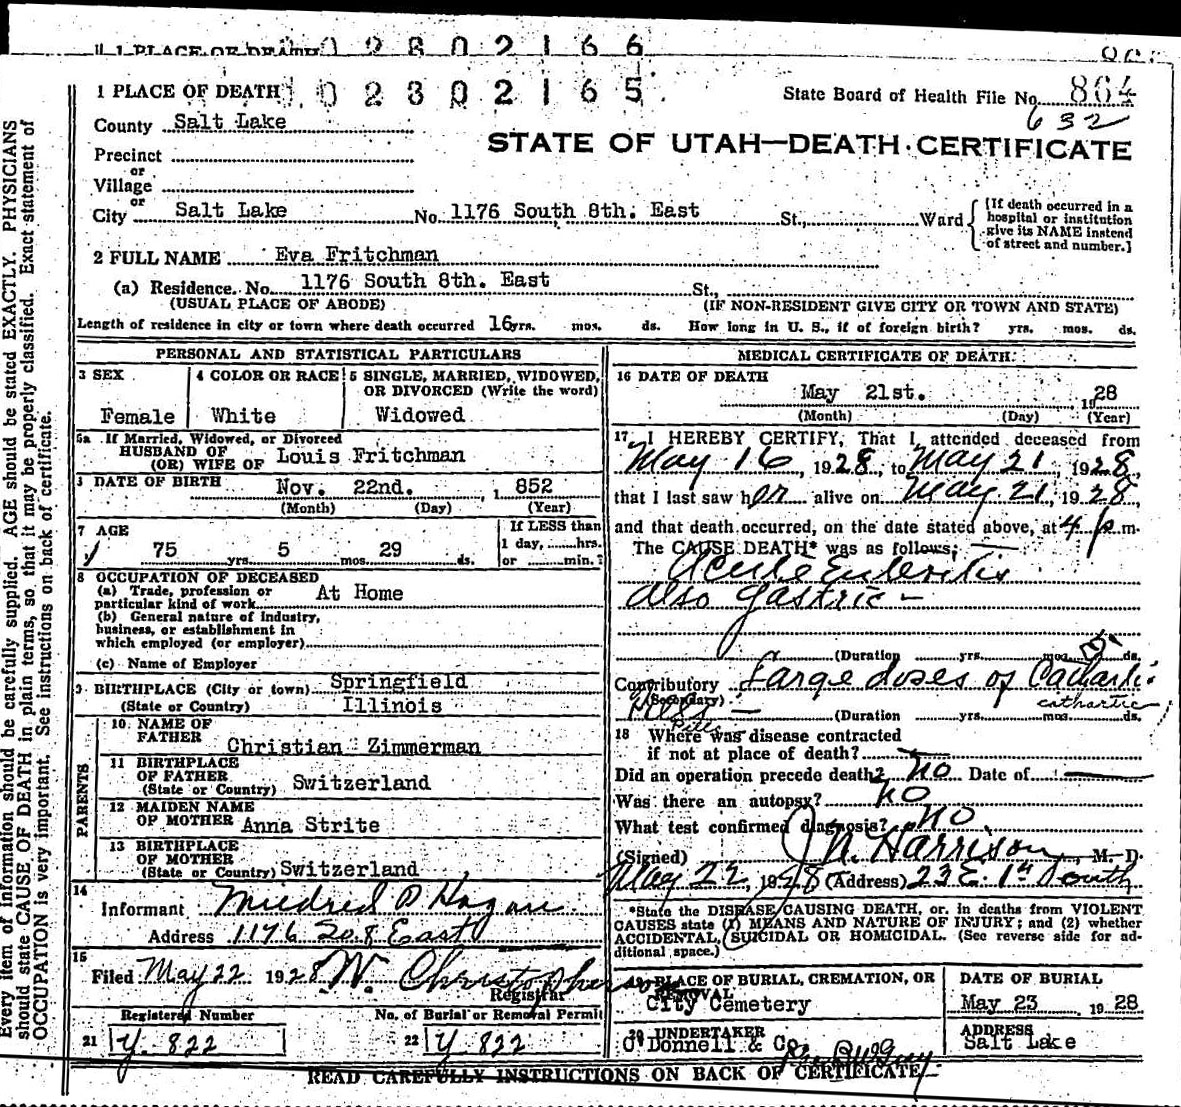 1 PLACE OF DEATH 0 2 8 0 2 1 6 6
1 PLACE OF DEATH 0 2 8 0 2 1 6 5
State Board of Health File No. 864
632
County Salt Lake
STATE OF UTAH—DEATH CERTIFICATE
Precinct
or
Village
or
City Salt Lake No. 1176 South 8th. East St., Ward
[If death occurred in a
hospital or institution
give its NAME instead
of street and number.]
2 FULL NAME Eva Fritchman
(a) Residence. No. 1176 South 8th. East St.,
(USUAL PLACE OF ABODE) (IF NON-RESIDENT GIVE CITY OR TOWN AND STATE)
Length of residence in city or town where death occurred 16 yrs. mos. ds. How long in U. S., if of foreign birth? yrs. mos. ds.
PERSONAL AND STATISTICAL PARTICULARS
3 SEX
Female
4 COLOR OR RACE
White
5 SINGLE, MARRIED, WIDOWED,
OR DIVORCED (Write the word)
Widowed
5a If Married, Widowed, or Divorced
HUSBAND OF
(OR) WIFE OF Louis Fritchman
DATE OF BIRTH Nov. 22nd. , 1852
(Month) (Day) (Year)
7 AGE
75 yrs. 5 mos. 29 ds.
If LESS than
1 day, ......hrs.
or ......min.?
8 OCCUPATION OF DECEASED
(a) Trade, profession or
particular kind of work At Home
(b) General nature of industry,
business, or establishment in
which employed (or employer)
(c) Name of Employer
9 BIRTHPLACE (City or town) Springfield
(State or Country) Illinois
PARENTS
10 NAME OF
FATHER
Christian Zimmerman
11 BIRTHPLACE
OF FATHER
(State or Country) Switzerland
12 MAIDEN NAME
OF MOTHER Anna Strite
13 BIRTHPLACE
OF MOTHER
(State or Country) Switzerland
14
Informant Mildred D Hogan
Address 1176 So. 8 East
15
Filed May 22 1928 W. Christopherson
Registrar
Registered Number
21 Y. 822
No. of Burial or Removal Permit
22 Y. 822
MEDICAL CERTIFICATE OF DEATH.
16 DATE OF DEATH
May 21st. 1928
(Month) (Day) (Year)
17 I HEREBY CERTIFY, That I attended deceased from
May 16, 1928, to May 21, 1928,
that I last saw her alive on May 21, 1928,
and that death occurred, on the date stated above, at 4 p.m.
The CAUSE DEATH* was as follows:
Acute Enteritis
also gastric —
(Duration yrs. mos. ds.
Contributory Large doses of Cathartic
(Secondary) cathartic
Pills —
(Duration yrs. mos. ds.
Pills
18 Where was disease contracted
if not at place of death?
Did an operation precede death? No Date of
Was there an autopsy? No
What test confirmed diagnosis? No
(Signed) N. Harrison, M. D.
May 22, 1928 (Address) 23 E. 1st South
*State the DISEASE CAUSING DEATH, or, in deaths from VIOLENT
CAUSES state (1) MEANS AND NATURE OF INJURY; and (2) whether
ACCIDENTAL, SUICIDAL OR HOMICIDAL. (See reverse side for ad-
ditional space.)
19 PLACE OF BURIAL, CREMATION, OR
REMOVAL
City Cemetery
DATE OF BURIAL
May 23 1928
20 UNDERTAKER
O'Donnell & Co.
ADDRESS
Salt Lake
READ CAREFULLY INSTRUCTIONS ON BACK OF CERTIFICATE
Every item of information should be carefully supplied. AGE should be stated EXACTLY. PHYSICIANS
should state CAUSE OF DEATH in plain terms, so that it may be properly classified. Exact statement of
OCCUPATION is very important. See instructions on back of certificate.